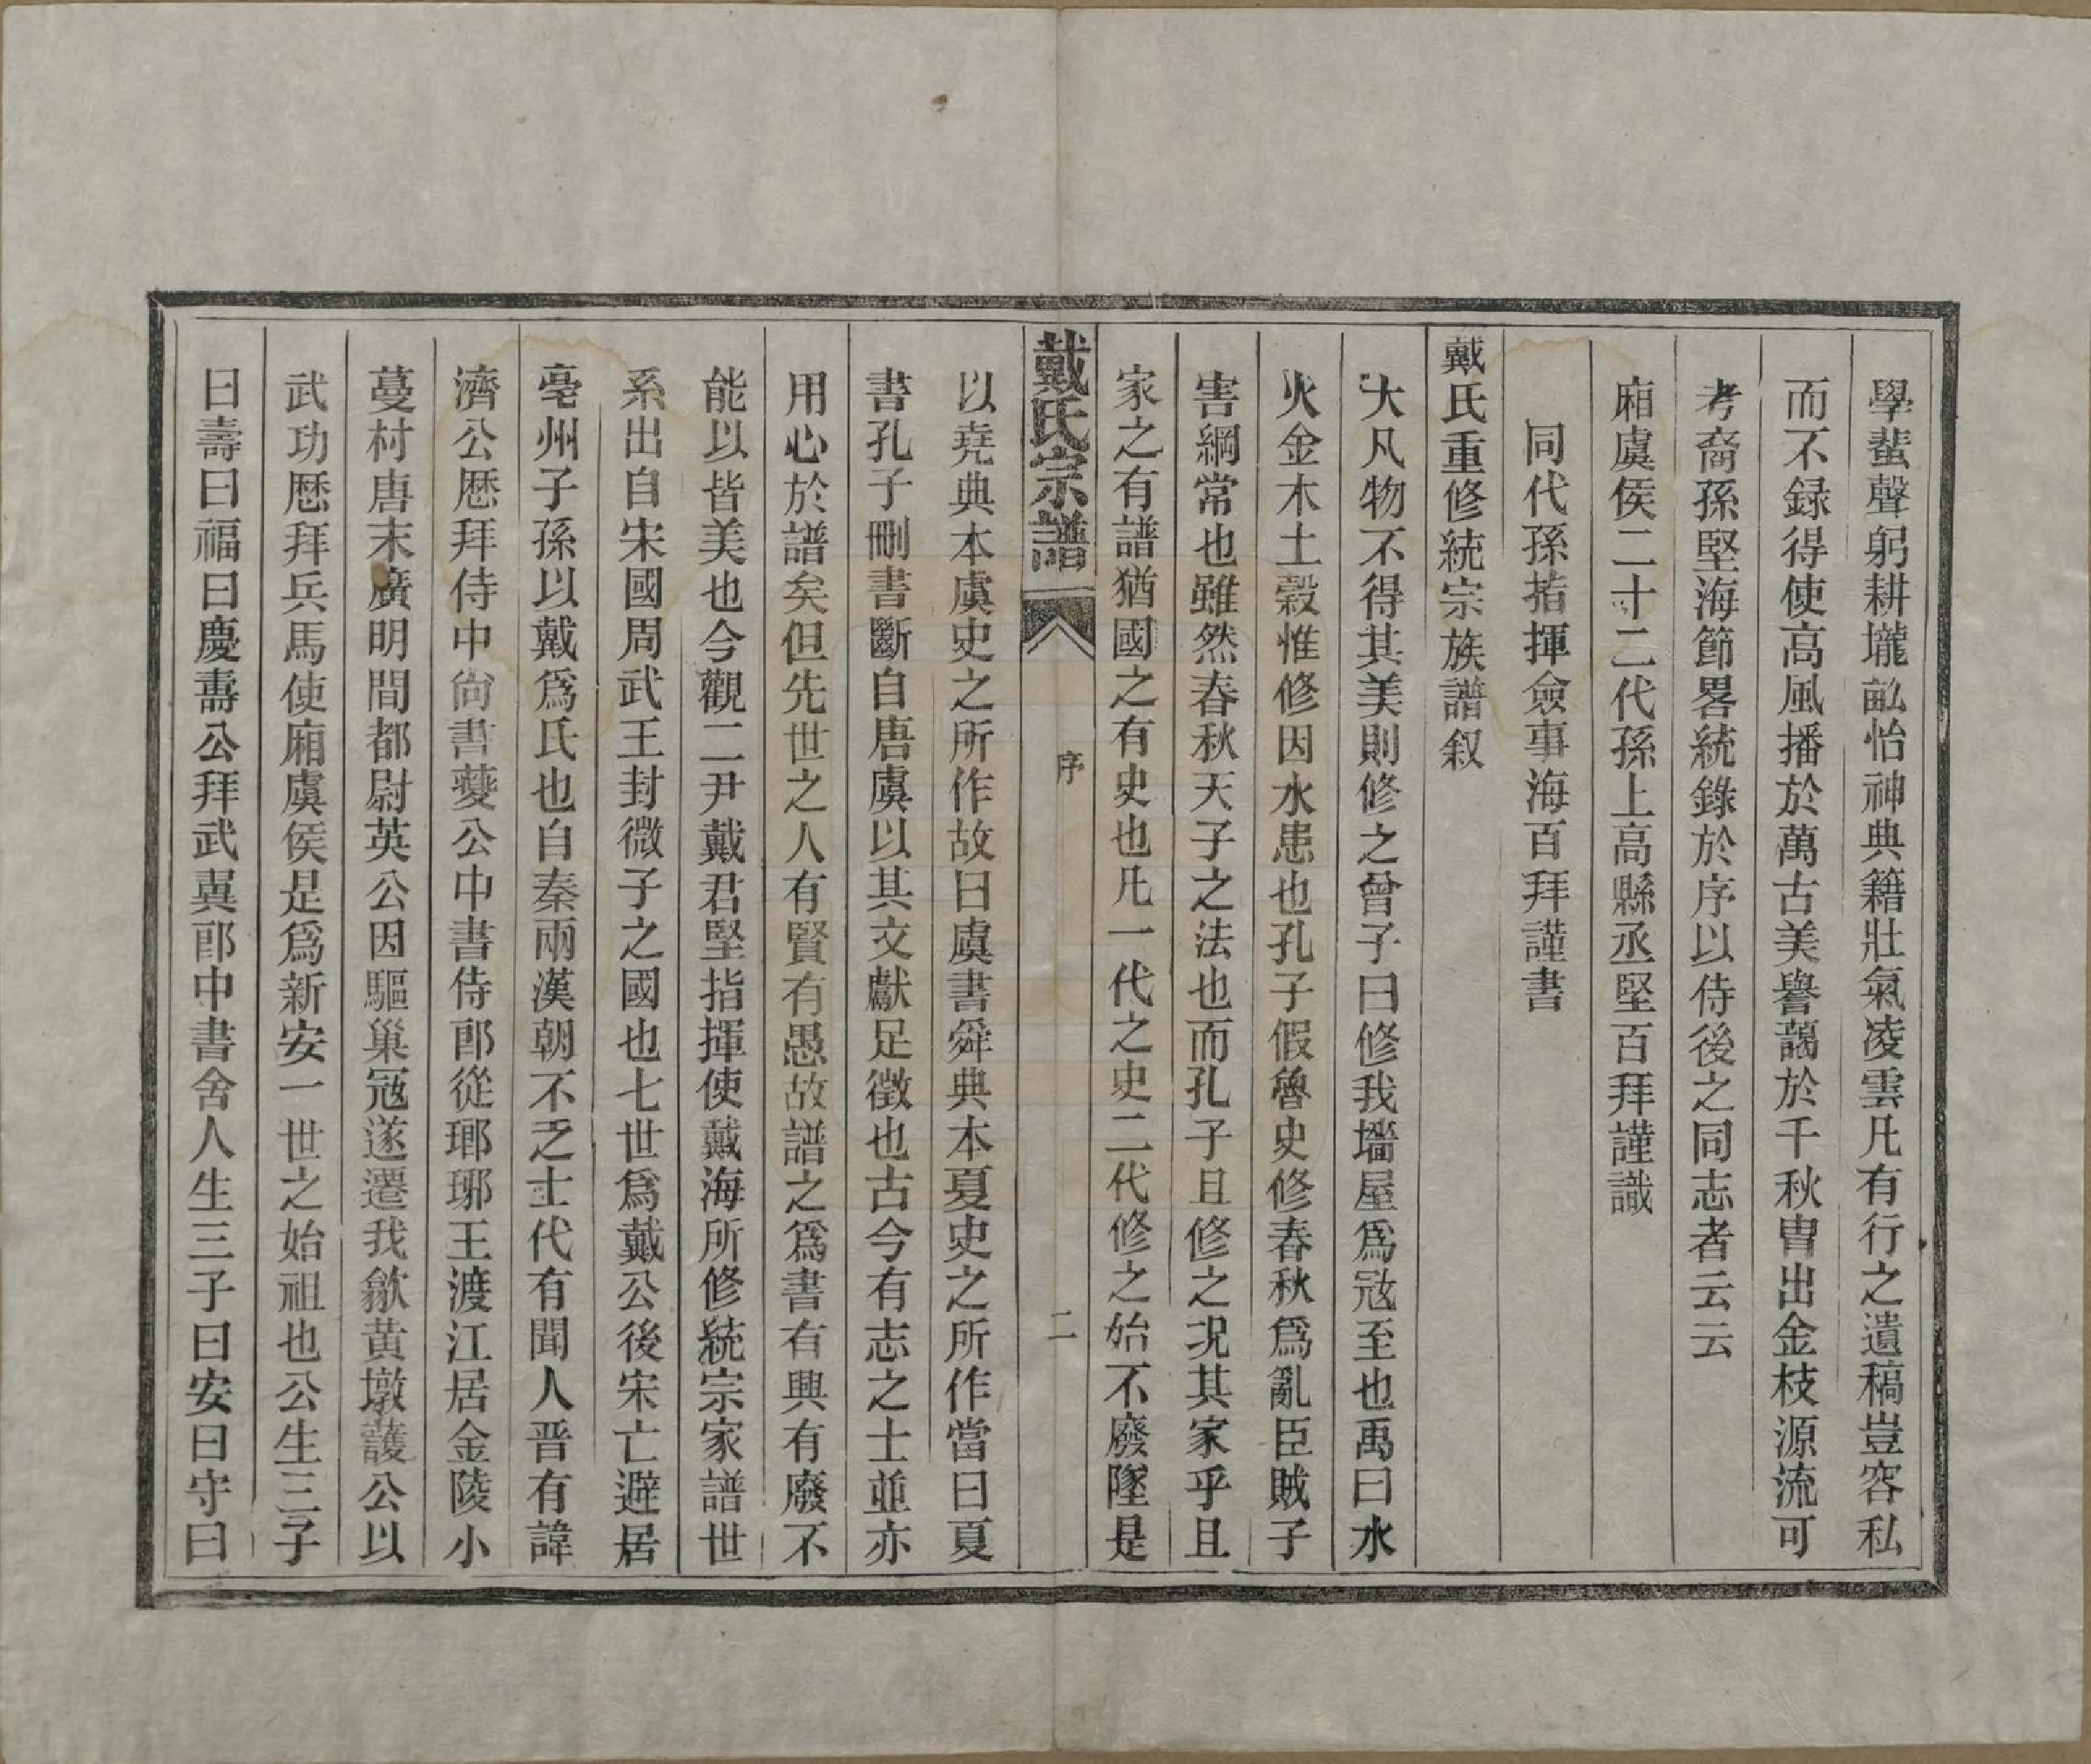 學蜚聲躬耕壠畝怡神典籍壯氣凌雲凡有行之遺稿豈容私
而不録得使高風播於萬古美譽藹於千秋冑出金枝源流可
考裔孫堅海節畧統錄於序以侍後之同志者云云
廂虞侯二十二代孫上高縣丞堅百拜謹識
同代孫指揮僉事海百拜謹書
戴氏重修統宗族譜叙
大凡物不得其美則修之曾子曰修我墻屋爲冦至也禹曰水
火金木土穀惟修因水患也孔子假魯史修春秋爲亂臣賊子
害綱常也雖然春秋天子之法也而孔子且修之況其家乎且
家之有譜猶國之有史也凡一代之史二代修之始不廢墜是
戴氏宗譜
序
二
以堯典本虞史之所作故曰虞書舜典本夏史之所作當曰夏
書孔子刪書斷自唐虞以其文獻足徵也古今有志之士並亦
用心於譜矣但先世之人有賢有愚故譜之爲書有興有廢不
能以皆美也今觀二尹戴君堅指揮使戴海所修統宗家譜世
系出自宋國周武王封微子之國也七世爲戴公後宋亡避居
亳州子孫以戴爲氏也自秦兩漢朝不乏士代有聞人晋有諱
濟公歷拜侍中尙書夔公中書侍郎從瑯琊王渡江居金陵小
蔓村唐末廣明間都尉英公因驅巢冦遂遷我歙黄墩護公以
武功歷拜兵馬使廂虞侯是爲新安一世之始祖也公生三子
曰壽曰福曰慶壽公拜武翼郎中書舍人生三子曰安曰守曰